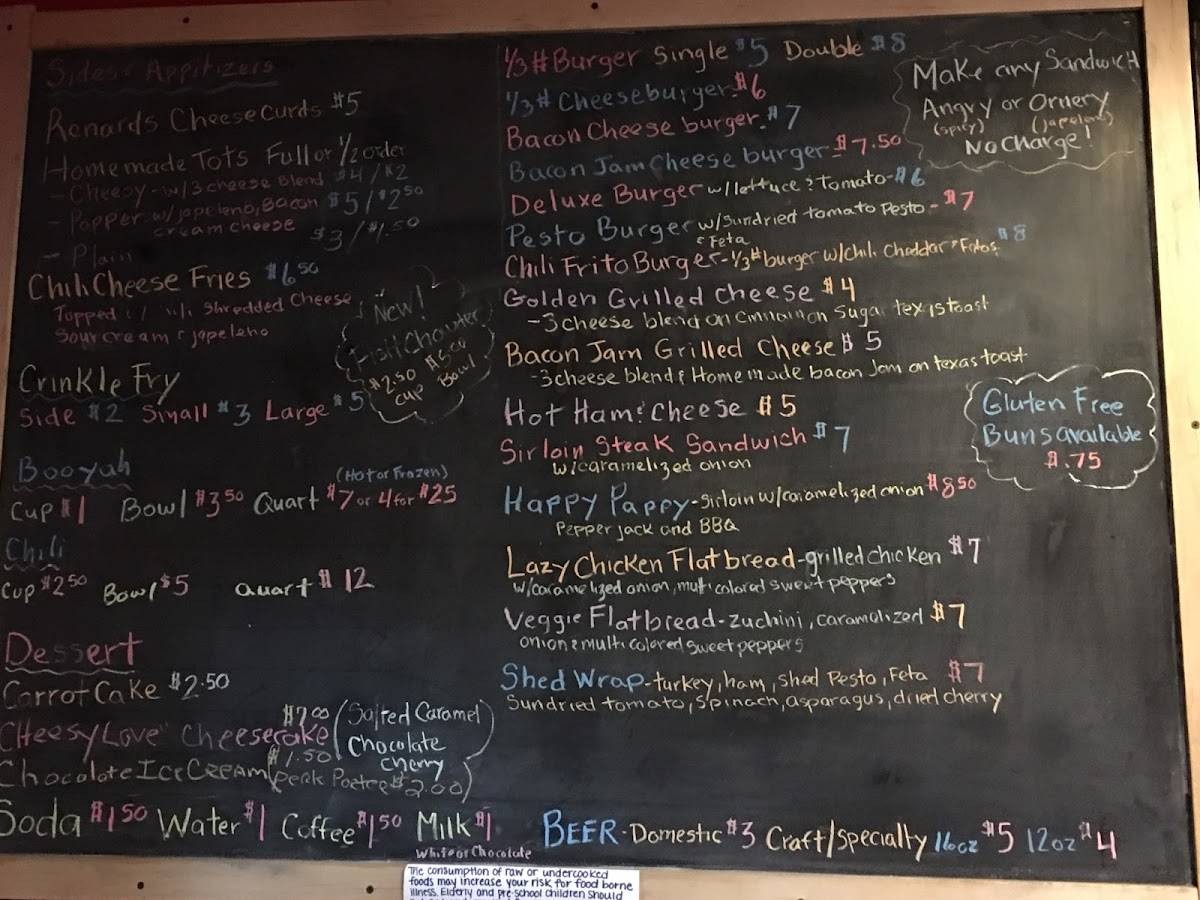 Sides & Appitizers
Renards Cheese Curds $5
Homemade Tots Full or 1/2 order
- Cheesy - w/ 3 cheese Blend $4 / $2
- Popper w/ japeleno, Bacon $5 / $2.50
cream cheese
- Plain $3 / $1.50
Chili Cheese Fries $6.50
Topped Shredded Cheese
Sour cream & japeleno
New!
Fish Chowder
$2.50 $5.00
cup Bowl
Crinkle Fry
Side $2 Small $3 Large $5
Booyah
(Hot or Frozen)
Cup $1 Bowl $3.50 Quart $7 or 4 for $25
Chili
Cup $2.50 Bowl $5 Quart $12
Dessert
Carrot Cake $2.50
"Cheesy Love" Cheesecake $7.00 (Salted Caramel
Chocolate
Cherry
Chocolate Ice Cream $1.50 $2.00)
Soda $1.50 Water $1 Coffee $1.50 Milk $1
White or Chocolate
1/3# Burger Single $5 Double $8
1/3# Cheeseburger - $6
Bacon Cheese burger - $7
Bacon Jam Cheese burger - $7.50
Deluxe Burger w/ lettuce & Tomato - $6
Pesto Burger w/ Sundried tomato Pesto - $7
& Feta
Chili Frito Burger - 1/3# burger w/ Chili, Cheddar & Fritos $8
Golden Grilled Cheese $4
- 3 cheese blend on Cinnamon Sugar texas toast
Bacon Jam Grilled Cheese $5
- 3 cheese blend & Homemade bacon Jam on texas toast
Hot Ham & Cheese $5
Sirloin Steak Sandwich $7
w/ caramelized onion
Happy Pappy - Sirloin w/ caramelized onion $8.50
Pepper jack and BBQ
Lazy Chicken Flatbread - grilled chicken $7
w/ caramelized onion, multi colored sweet peppers
Veggie Flatbread - zuchini, caramelized $7
onion & multi colored sweet peppers
Shed Wrap - turkey, ham, shed Pesto, Feta $7
Sundried tomato, Spinach, asparagus, dried cherry
Make any Sandwich
Angry or Ornery
(spicy) (japeleno)
No Charge!
Gluten Free
Buns available
$.75
BEER - Domestic $3 Craft/Specialty 16oz $5 12oz $4
The consumption of raw or undercooked
foods may increase your risk for food borne
illness. Elderly and pre-school children should